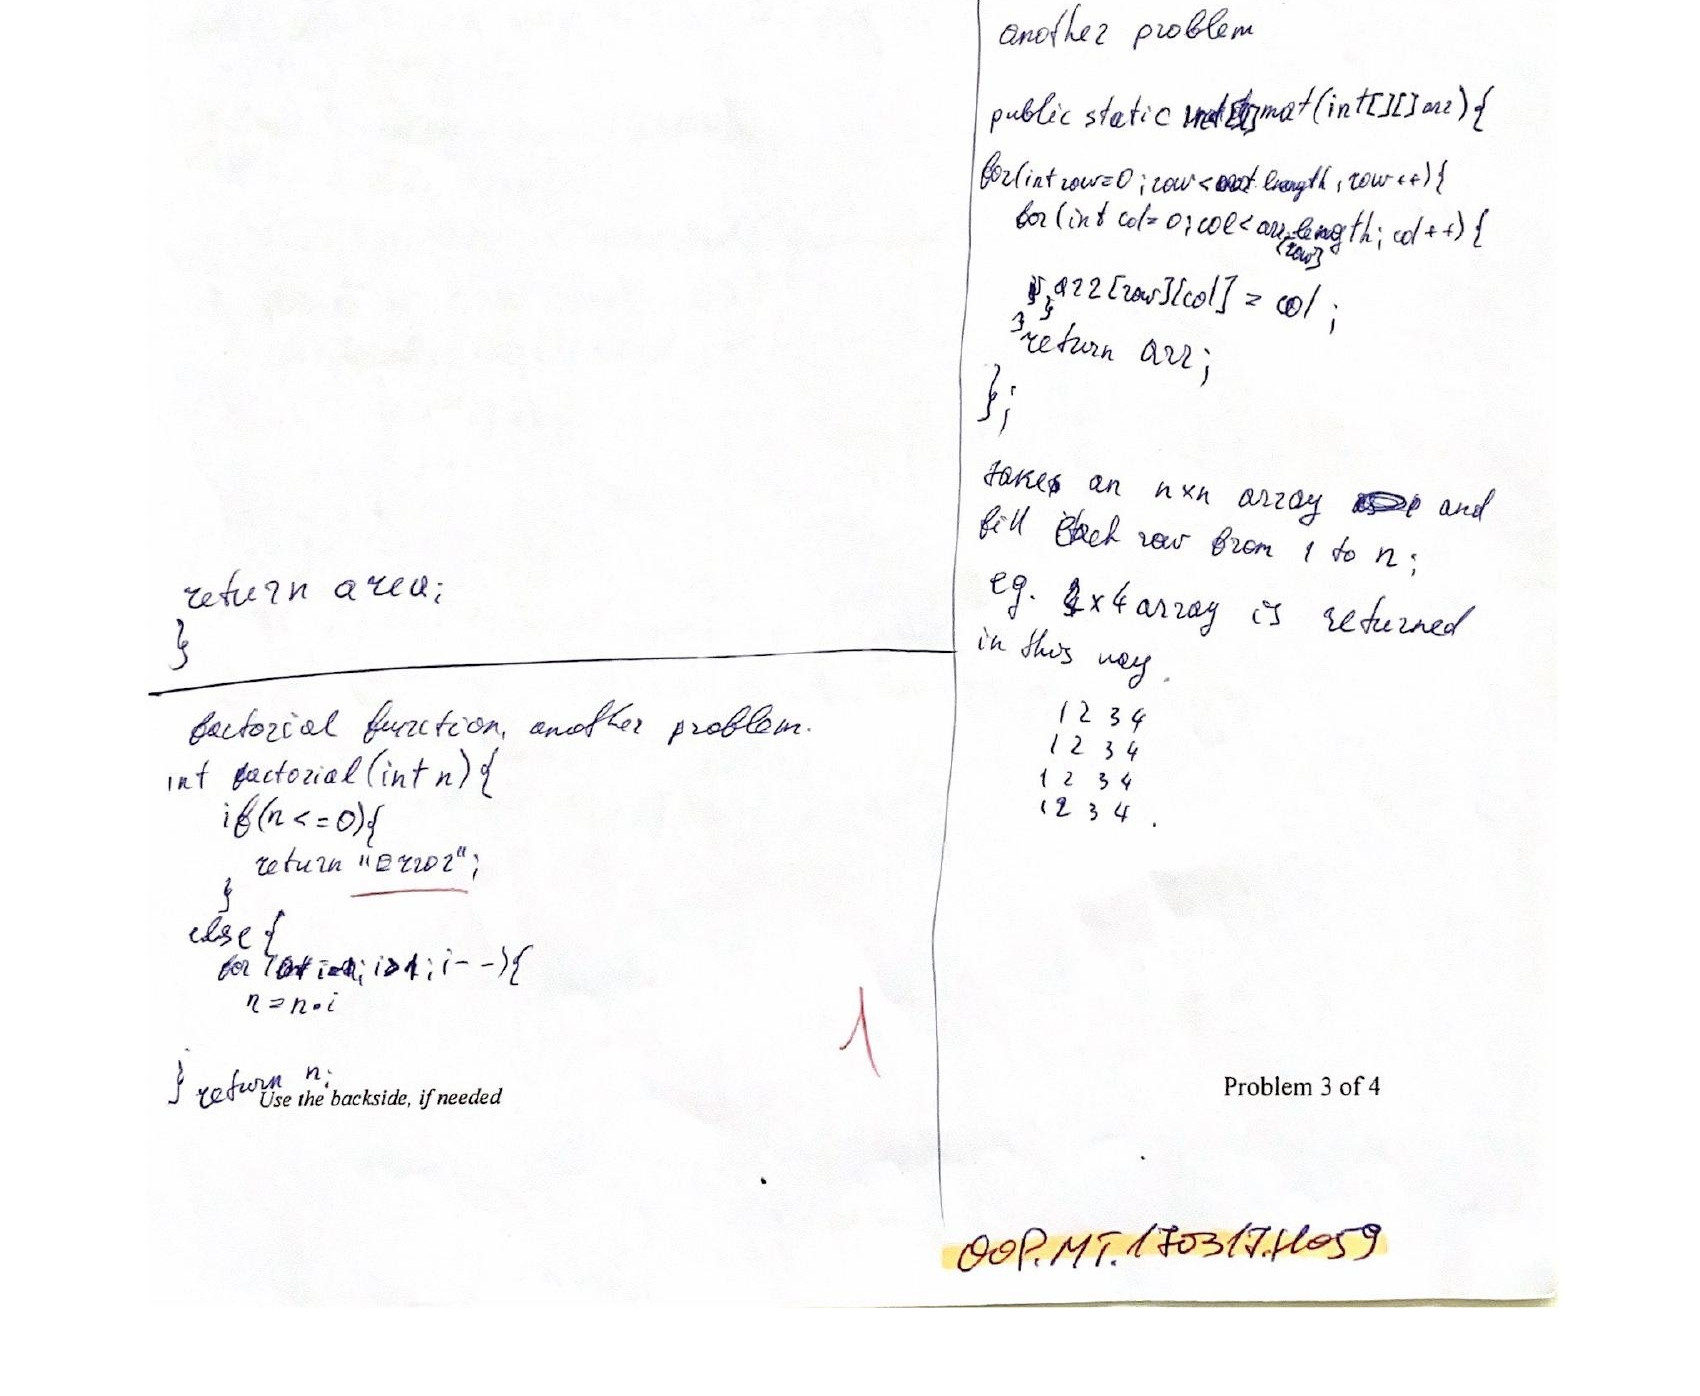 return area;
}
factorial function, another problem.
int factorial(int n){
if(n <= 0){
return "Error";
}
else {
for (int i=n; i>1; i--){
n = n·i
} return n;
Use the backside, if needed
1
another problem
public static mat(int[][] arr){
for(int row=0; row< length, row++){
for(int col=0; col< arr.length; col++){
[row]
arr[row][col] = col;
}
}
return arr;
};
takes an n×n array and
fill each row from 1 to n;
eg. 4×4 array is returned
in this way.
1 2 3 4
1 2 3 4
1 2 3 4
1 2 3 4.
Problem 3 of 4
OOP.MT.170317.H059